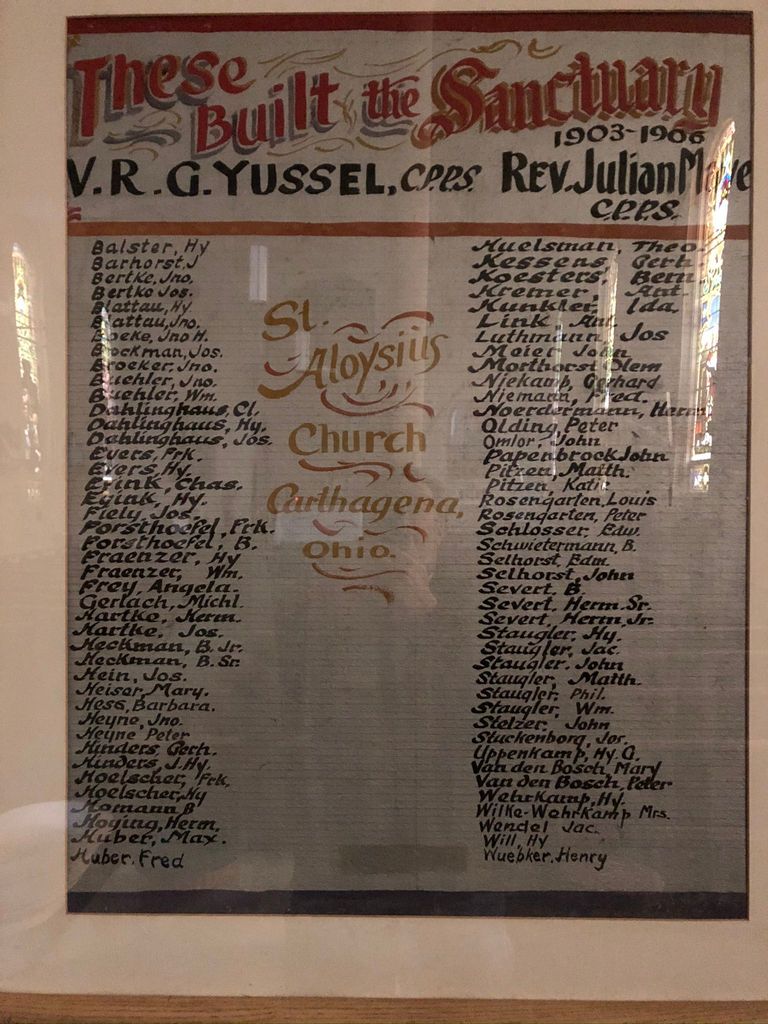 These
Built the Sanctuary
1903-1906
V.R.G. YUSSEL, C.PP.S. REV. Julian
C.P.P.S.
Balster, Hy
Barhorst, J
Bertke, Jno.
Bertke Jos.
Blattau, Hy
Blattau, Jno.
Boeke, Jno H.
Brockman, Jos.
Broeker, Jno.
Buehler, Jno.
Buehler, Wm.
Dahlinghaus, Cl.
Dahlinghaus, Hy.
Dahlinghaus, Jos.
Evers, Frk.
Evers, Hy.
Erink, Chas.
Egink, Hy.
Fiely, Jos.
Forsthoefel, Frk.
Forsthoefel, B.
Fraenzer, Hy
Fraenzer, Wm.
Frey, Angela.
Gerlach, Michl.
Hartke, Herm.
Hartke, Jos.
Heckman, B. Jr.
Heckman, B. Sr.
Hein, Jos.
Heiser, Mary.
Hess, Barbara.
Heyne, Jno.
Heyne Peter
Hinders, Gerh.
Hinders, J. Hy.
Hoelscher, Frk.
Hoelscher, Hy
Homann B
Hoging, Herm.
Huber, Max.
Huber. Fred
St.
Aloysiüs
Church
Carthagena,
Ohio.
Huelsman, Theo.
Kessens, Gerh.
Koesters, Bern.
Kremer, Ant.
Kunkler, Ida.
Link Ant.
Luthmann, Jos
Meier John
Morthorst Clem
Niekamp, Gerhard
Niemann, Fred.
Noerdermann, Herm
Olding, Peter
Omlor, John
Papenbrock John
Pitzen, Matth.
Pitzen, Katie
Rosengarten, Louis
Rosengarten, Peter
Schlosser, Edw.
Schwietermann, B.
Selhorst, Edm.
Selhorst, John
Severt, B.
Severt, Herm. Sr.
Severt, Herm, Jr.
Staugler, Hy.
Staugler, Jac.
Staugler, John
Staugler, Matth.
Staugler, Phil.
Staugler, Wm.
Stelzer, John
Stuckenborg, Jos.
Uppenkamp, Hy. G.
Van den Bosch, Mary
Van den Bosch, Peter
Wehrkamp, Hy.
Wilke-Wehrkamp Mrs.
Wendel Jac.
Will, Hy
Wuebker, Henry